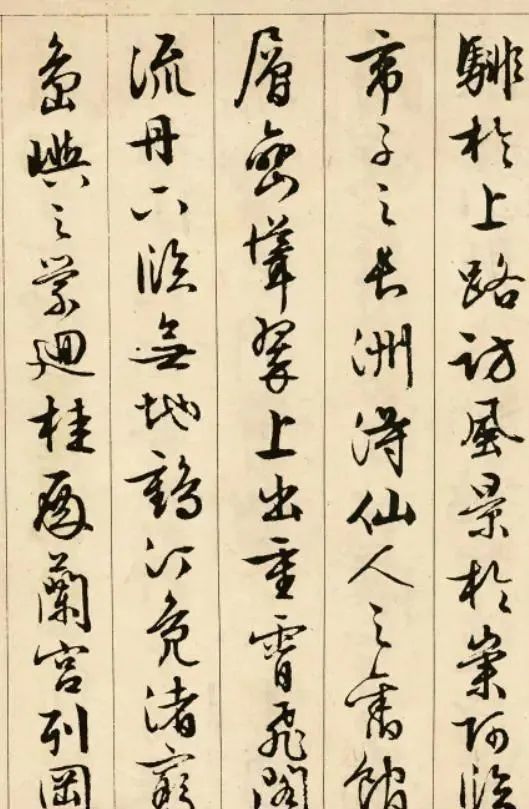 騑於上路訪風景於崇阿臨
帝子之長洲得仙人之舊館
層巒聳翠上出重霄飛閣
流丹下臨無地鶴汀鳧渚窮
島嶼之縈迴桂殿蘭宮列岡